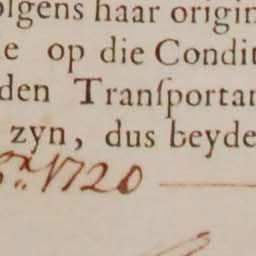 olgens haar origin
e op die Condit
den Tranſportan
zyn, dus beyde
1720